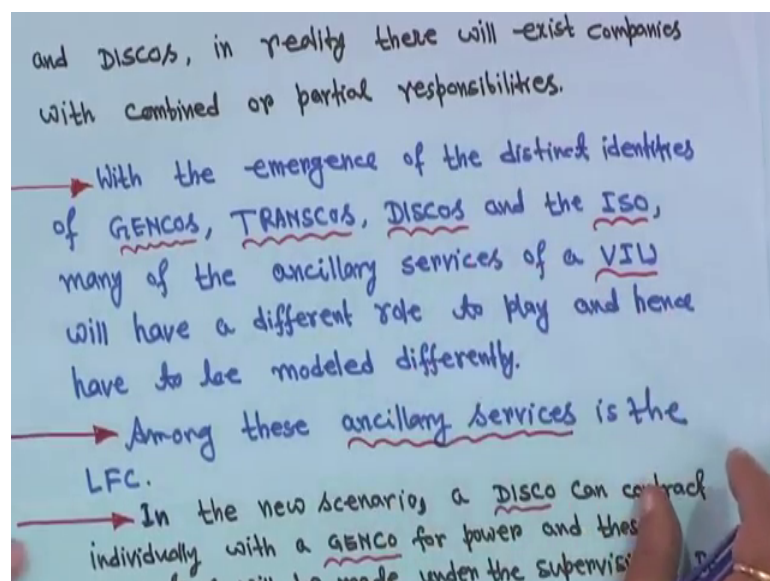 and DISCOS, in reality there will exist companies
with combined or partial responsibilities.
With the emergence of the distinct identities
of GENCOS, TRANSCOS, DISCOS and the ISO,
many of the ancillary services of a VIU
will have a different role to play and hence
have to be modeled differently.
Among these ancillary services is the
LFC.
In the new scenario, a DISCO can contract
individually with a GENCO for power and
made under the